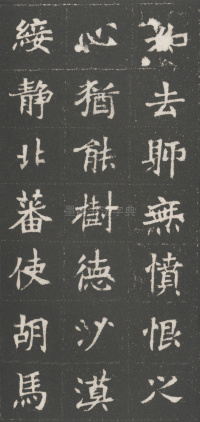 去耶無憤恨之
心猶能樹德沙漠
綏静北蕃使胡馬